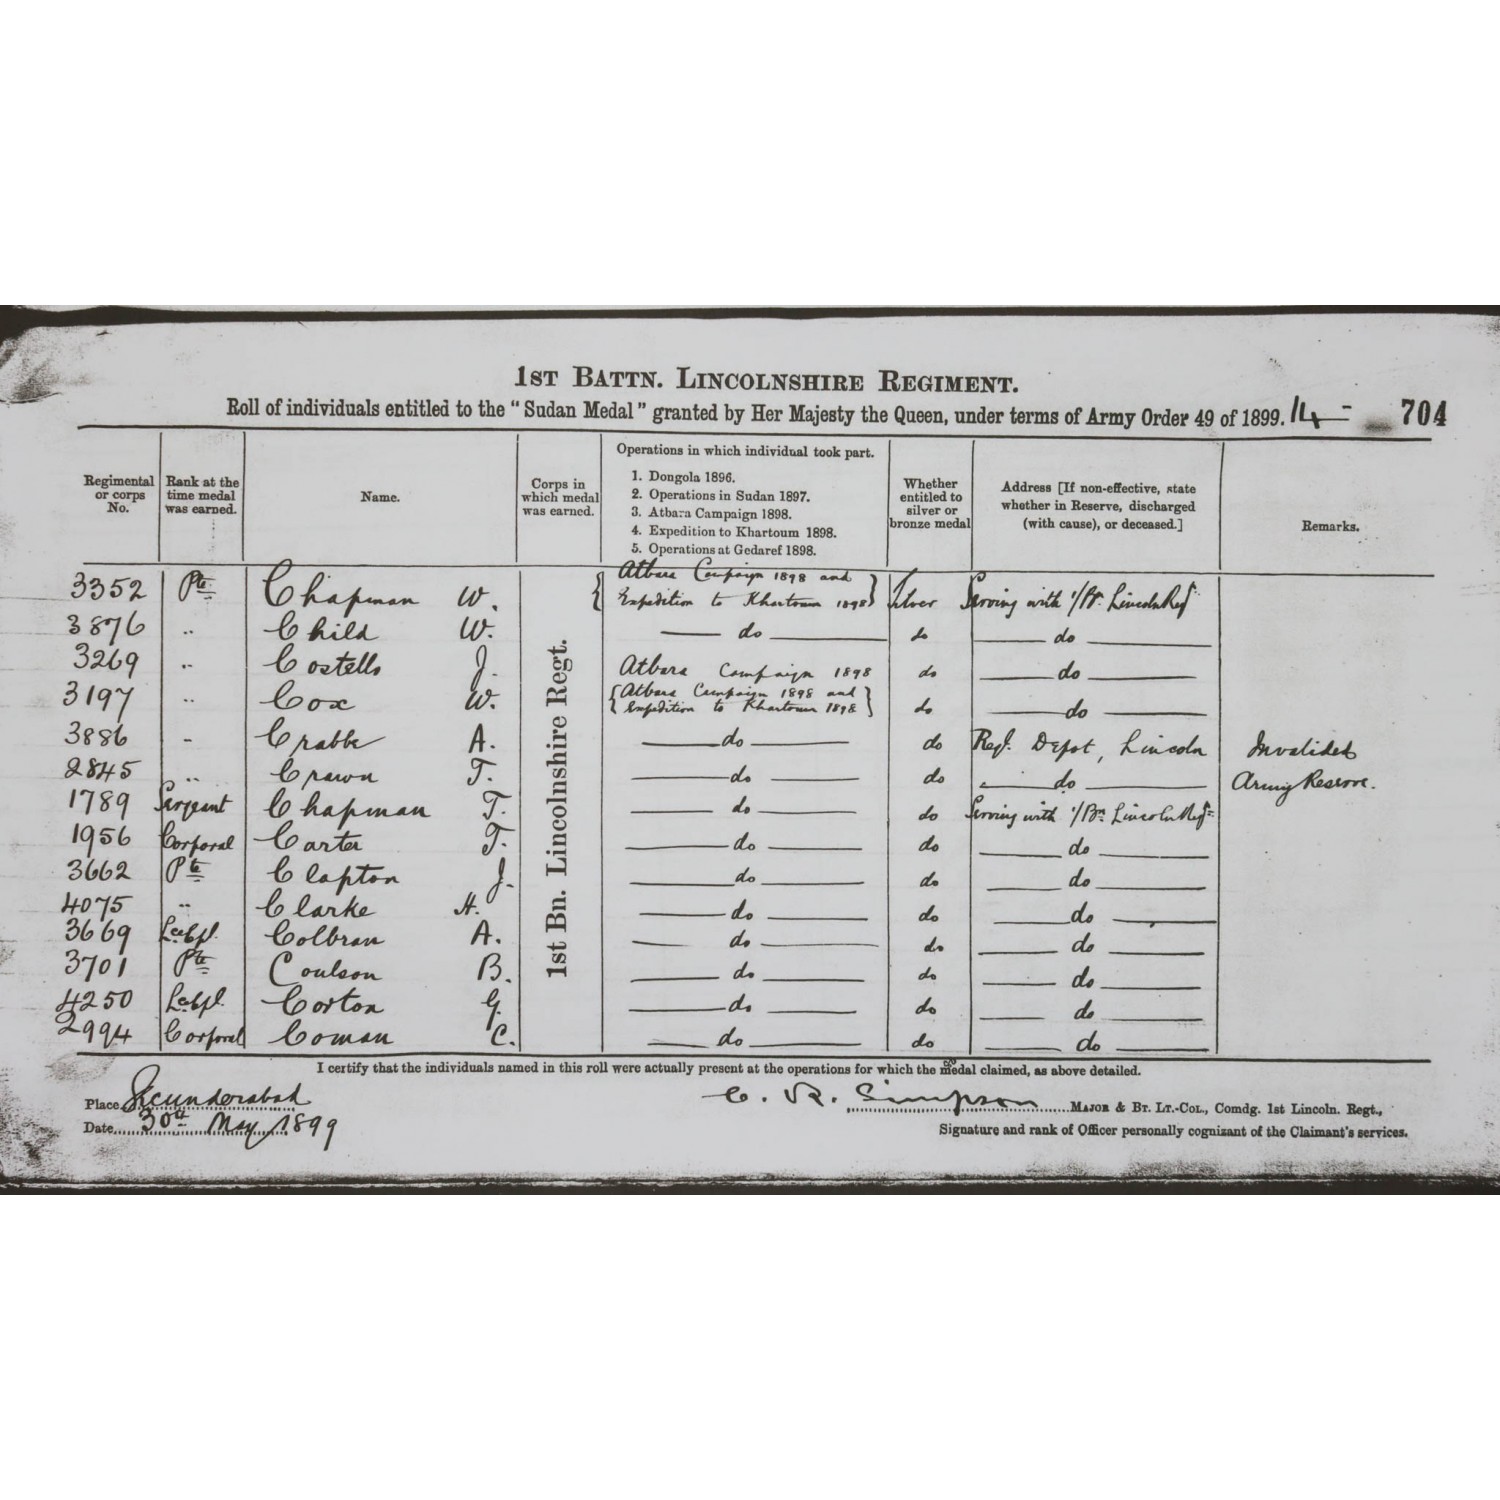 1ST BATTN. LINCOLNSHIRE REGIMENT.
Roll of individuals entitled to the "Sudan Medal" granted by Her Majesty the Queen, under terms of Army Order 49 of 1899. 14 - 704
Regimental or corps No. Rank at the time medal was earned. Name. Corps in which medal was earned. Operations in which individual took part. 1. Dongola 1896. 2. Operations in Sudan 1897. 3. Atbara Campaign 1898. 4. Expedition to Khartoum 1898. 5. Operations at Gedaref 1898. Whether entitled to silver or bronze medal Address [If non-effective, state whether in Reserve, discharged (with cause), or deceased.] Remarks.
1st Bn. Lincolnshire Regt.
3352 Pte Chapman W. { Atbara Campaign 1898 and Expedition to Khartoum 1898 } Silver Serving with 1/Bn. Lincoln Regt
3876 " Child W. do do do
3269 " Costello J. Atbara Campaign 1898 do do
3197 " Cox W. { Atbara Campaign 1898 and Expedition to Khartoum 1898 } do do
3886 " Crabbe A. do do Regl. Depot, Lincoln Invalided
2845 " Crawn T. do do do Army Reserve.
1789 Sergeant Chapman T. do do Serving with 1/Bn. Lincoln Regt
1956 Corporal Carter T. do do do
3662 Pte Clapton J. do do do
4075 " Clarke H. do do do
3669 Lce Cpl. Colbran A. do do do
3701 Pte Coulson B. do do do
4250 Lce Cpl. Corton G. do do do
2994 Corporal Coman C. do do do
I certify that the individuals named in this roll were actually present at the operations for which the medal claimed, as above detailed.
Place Secunderabad C. R. Simpson MAJOR & BT. LT.-COL., Comdg. 1st Lincoln. Regt.,
Date 30th May 1899 Signature and rank of Officer personally cognizant of the Claimant's services.